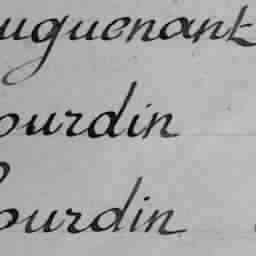 uguenant
ourdin
ourdin